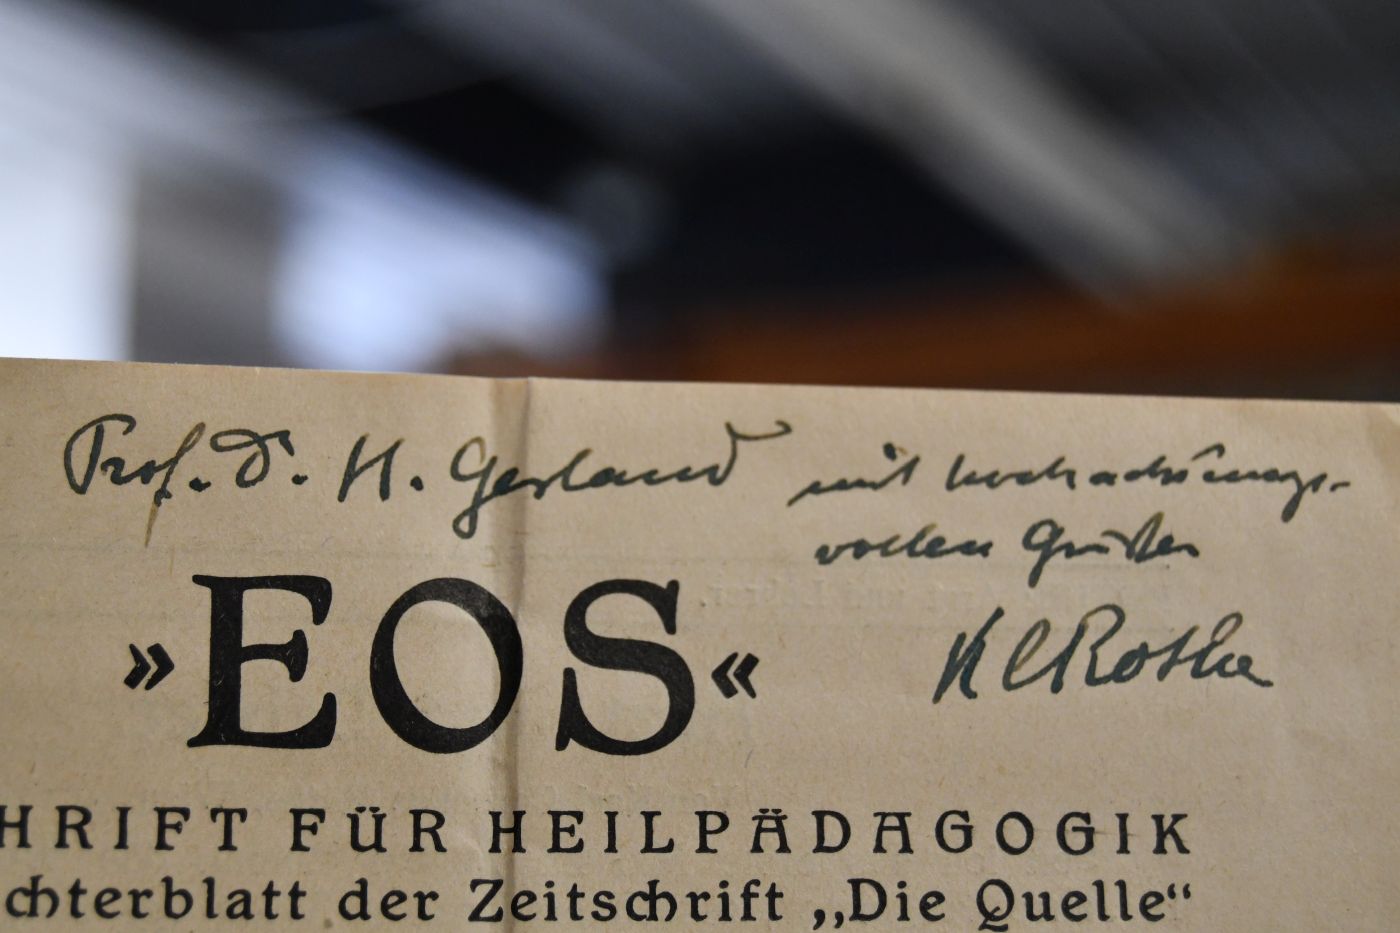 Prof. D. H. Gerland mit hochachtungs-
vollen Grüßen
K C Rothe
»EOS«
HRIFT FÜR HEILPÄDAGOGIK
chterblatt der Zeitschrift „Die Quelle“